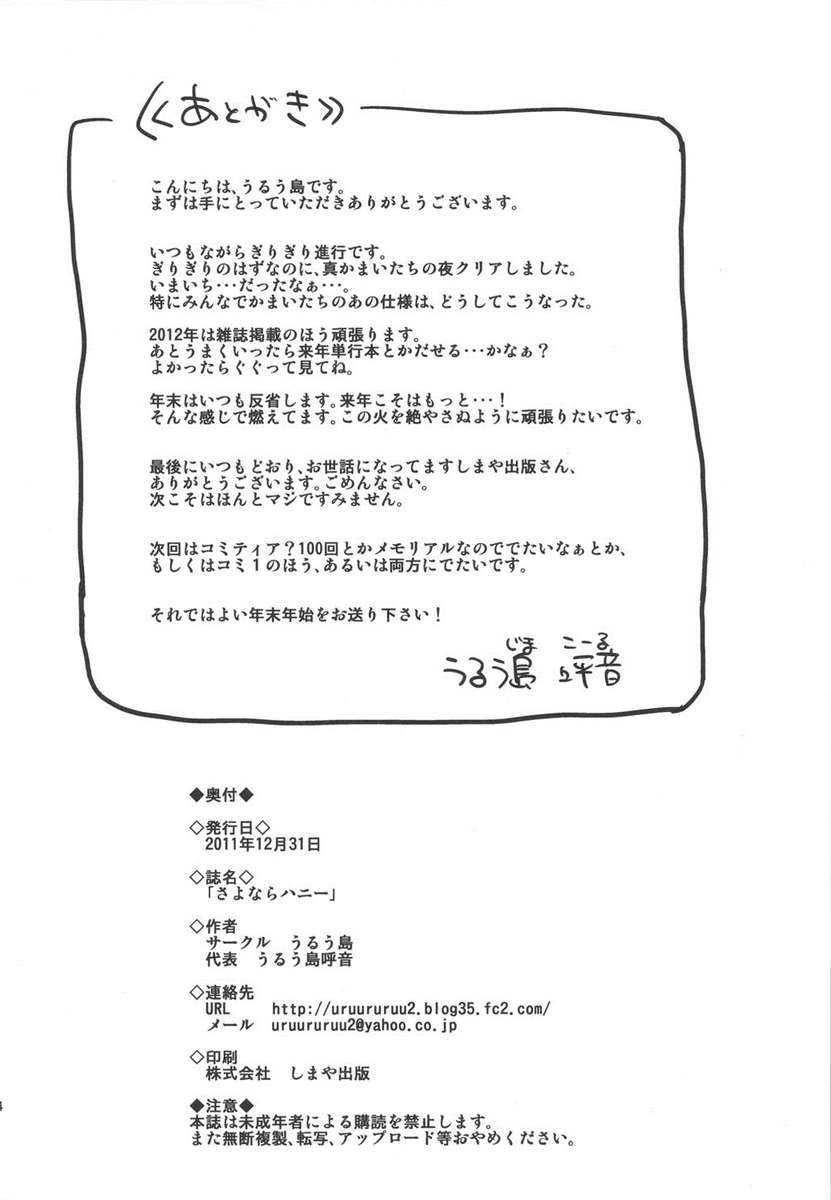 《あとがき》
こんにちは、うるう島です。
まずは手にとっていただきありがとうございます。
いつもながらぎりぎり進行です。
ぎりぎりのはずなのに、真かまいたちの夜クリアしました。
いまいち･･･だったなぁ･･･。
特にみんなでかまいたちのあの仕様は、どうしてこうなった。
2012年は雑誌掲載のほう頑張ります。
あとうまくいったら来年単行本とかだせる･･･かなぁ？
よかったらぐぐって見てね。
年末はいつも反省します。来年こそはもっと･･･！
そんな感じで燃えてます。この火を絶やさぬように頑張りたいです。
最後にいつもどおり、お世話になってますしまや出版さん、
ありがとうございます。ごめんなさい。
次こそはほんとマジですみません。
次回はコミティア？100回とかメモリアルなのででたいなぁとか、
もしくはコミ１のほう、あるいは両方にでたいです。
それではよい年末年始をお送り下さい！
じま こーる
うるう島 呼音
◆奥付◆
◇発行日◇
2011年12月31日
◇誌名◇
「さよならハニー」
◇作者
サークル　うるう島
代表　うるう島呼音
◇連絡先
URL　　http://uruururuu2.blog35.fc2.com/
メール　uruururuu2@yahoo.co.jp
◇印刷
株式会社　しまや出版
◆注意◆
本誌は未成年者による購読を禁止します。
また無断複製、転写、アップロード等おやめください。
4